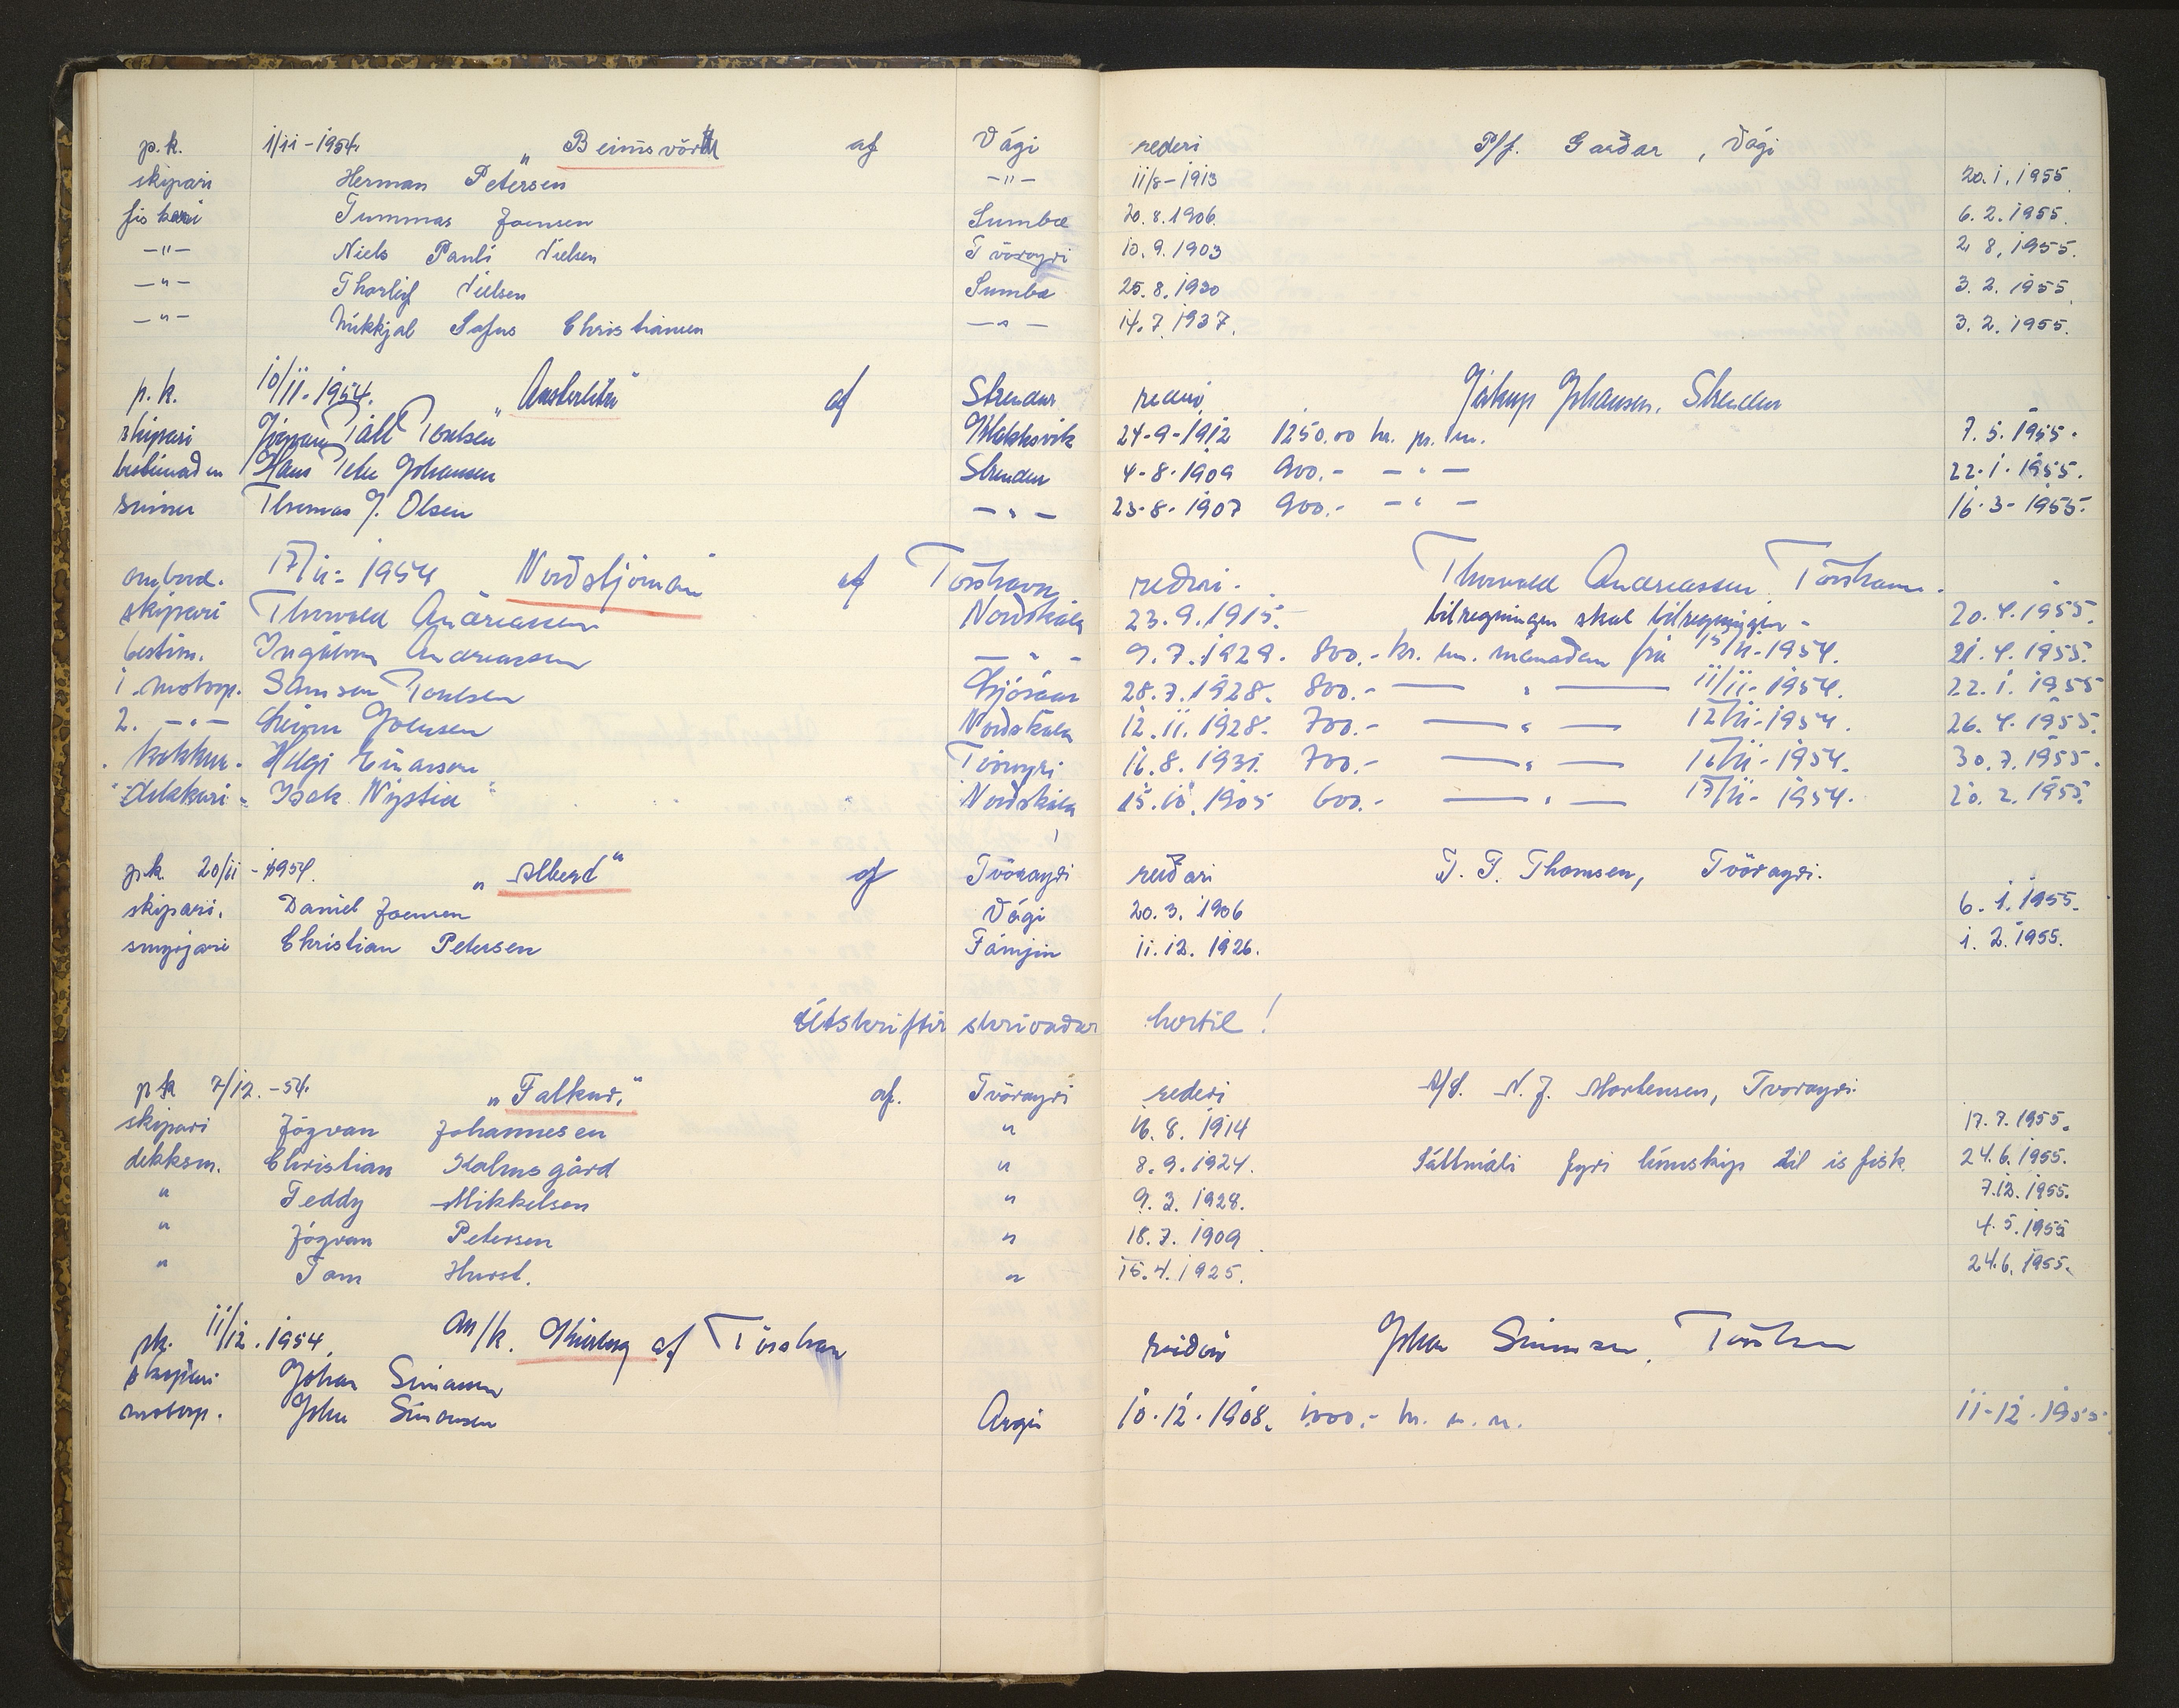 p.k. 1/11-1954. „Beinisvörð af Vági rederi P/f. Garðar, Vági
skipari Herman Petersen -"- 11/8-1913 20.1.1955.
fiskari Tummas Joensen Sumba 20.8.1906. 6.2.1955.
-"- Niels Pauli Nielsen Tvöroyri 10.9.1903 2.8.1955.
-"- Thorleif Nielsen Sumba 25.8.1930 3.2.1955.
-"- Mikkjal Sofus Christiansen -"- 14.7.1937. 3.2.1955.
p.k. 10/11-1954. „Austerlitz" af Strendur rederi Jákup Johansen, Strendur
skipari Jógvan Páll Poulsen Klakksvík 24-9-1912 1250,00 kr. pr. m. 7.5.1955.
bestimaðin Hans Peter Johansen Strendur 4-8-1909 900.- -"- 22-1-1955.
Thomas J. Olsen -"- 23-8-1907 900.- -"- 16-3-1955.
17/11-1954 Norðsljómin af Tórshavn reðari. Thorvald Andreassen Tórshavn.
skipari Thorvald Andreassen Norðskála 23.9.1915.- tilregningin skal tilregningin - 20.4.1955.
bestim. Ingálvur Andreassen -"- 9.7.1929. 800.- kr. um mánaðan frá 15/11-1954. 21.4.1955.
1. motorp. Sámson Poulsen 28.7.1928. 800.- -"- 11/11-1954. 22.1.1955
2. -"- Joensen Norðskála 12.11.1928. 700.- -"- 12/11-1954. 26.4.1955.
kokkur. Helgi Einarson Tvöroyri 16.8.1931. 700.- -"- 16/11-1954. 30.7.1955.
dekkari. Isak Nystid Norðskála 15.10.1905 600.- -"- 17/11-1954. 20.2.1955.
p.k. 20/11-1954. „Albert" af Tvöroyri reiðari T. F. Thomsen, Tvöroyri.
skipari. Daniel Joensen Vági 20.3.1906 6.1.1955.
smyrjari Christian Petersen Fámjin 11.12.1926. 1.2.1955.
Útskriftir skrivaðar hertil!
p.k 7/12.-54. „Falkur." af. Tvöroyri rederi A/S. N. J. Mortensen, Tvoroyri.
skipari Jógvan Johannesen " 16.8.1914 17.7.1955.
dekksm. Christian Holmsgård " 8.9.1924. Sáttmáli fyri línuskip til ísfisk. 24.6.1955.
" Teddy Mikkelsen " 9.3.1928. 7.12.1955.
" Jógvan Petersen " 18.7.1909. 4.5.1955
" Tom Hurst. " 15.4.1925. 24.6.1955.
pk. 11/12.1954. m/k. af Tórshavn reiðari Johan Simonsen, Tórshavn
skipari Johan Simonsen
motorp. John Simonsen Argir 10.12.1908. 1000.- kr. m.m. 11-12-1955.